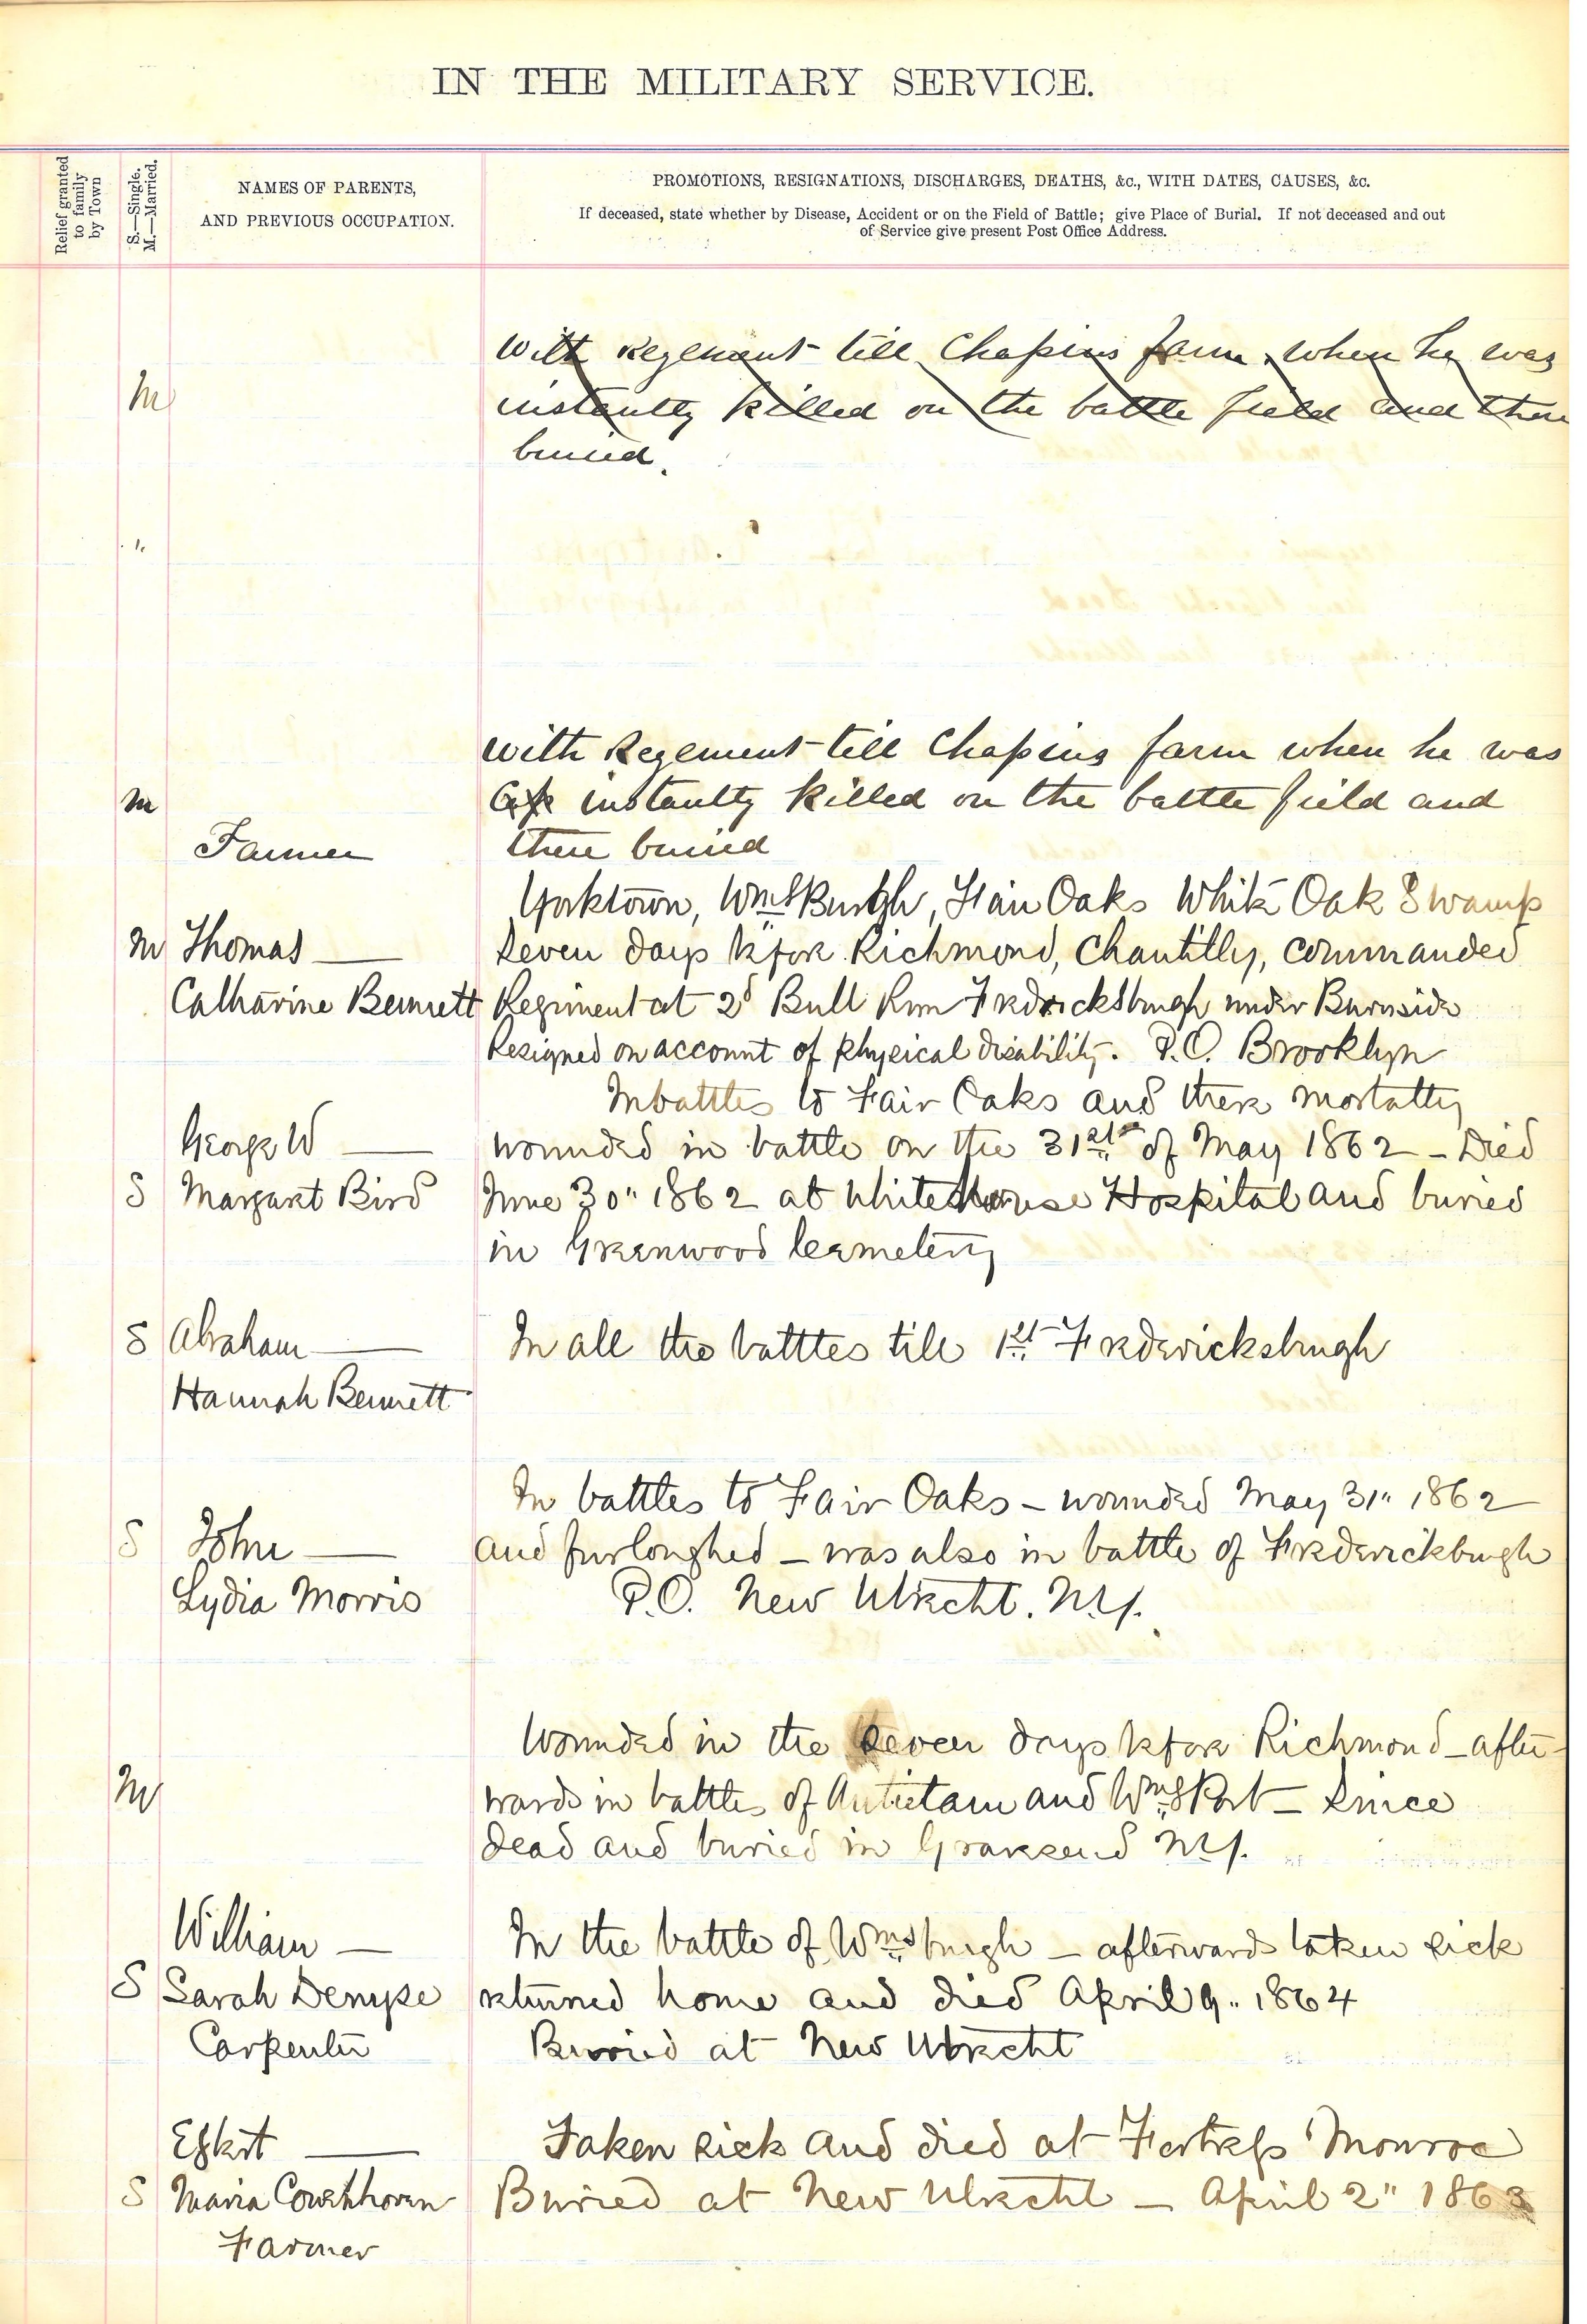 IN THE MILITARY SERVICE.
Relief granted
to family
by Town
S.—Single.
M.—Married.
NAMES OF PARENTS,
AND PREVIOUS OCCUPATION.
PROMOTIONS, RESIGNATIONS, DISCHARGES, DEATHS, &c., WITH DATES, CAUSES, &c.
If deceased, state whether by Disease, Accident or on the Field of Battle; give Place of Burial. If not deceased and out
of Service give present Post Office Address.
With Regement till Chapins farm when he was
M
instantly killed on the battle field and there
buried.
"
With Regement till Chapins farm when he was
M
instantly killed on the battle field and
Farmer
there buried
Yorktown, WmsBurgh, Fair Oaks White Oak Swamp
M Thomas —
Seven days before Richmond, Chantilly, commanded
Catharine Bennett
Regiment at 2d Bull Run Fredricksburgh under Burnside
Resigned on account of Physical disability. P.O. Brooklyn
In battles to Fair Oaks and there mortally
George W —
wounded in battle on the 31st of May 1862 – Died
S Margaret Bird
June 30" 1862 at White House Hospital and buried
in Greenwood Cemetery
S Abraham —
In all the battles till 1st Frederricksburgh
Hannah Bennett
In battles to Fair Oaks – wounded May 31" 1862
S John —
and furloughed – was also in battle of Frederickburgh
Lydia Morris
P.O. New Utrecht. N.Y.
Wounded in the Seven days before Richmond – after-
M
wards in battles of Antietam and WmsPort – Since
dead and buried in Gravesend N.Y.
William —
In the battle of Wmsburgh – afterwards taken sick
S Sarah Denyse
returned home and died April 9" 1864
Carpenter
Burried at New Utrecht
Egbert —
Taken sick and died at Fortress Monroe
S Maria Cowenhoven
Buried at New Utrecht – April 2" 1863
Farmer